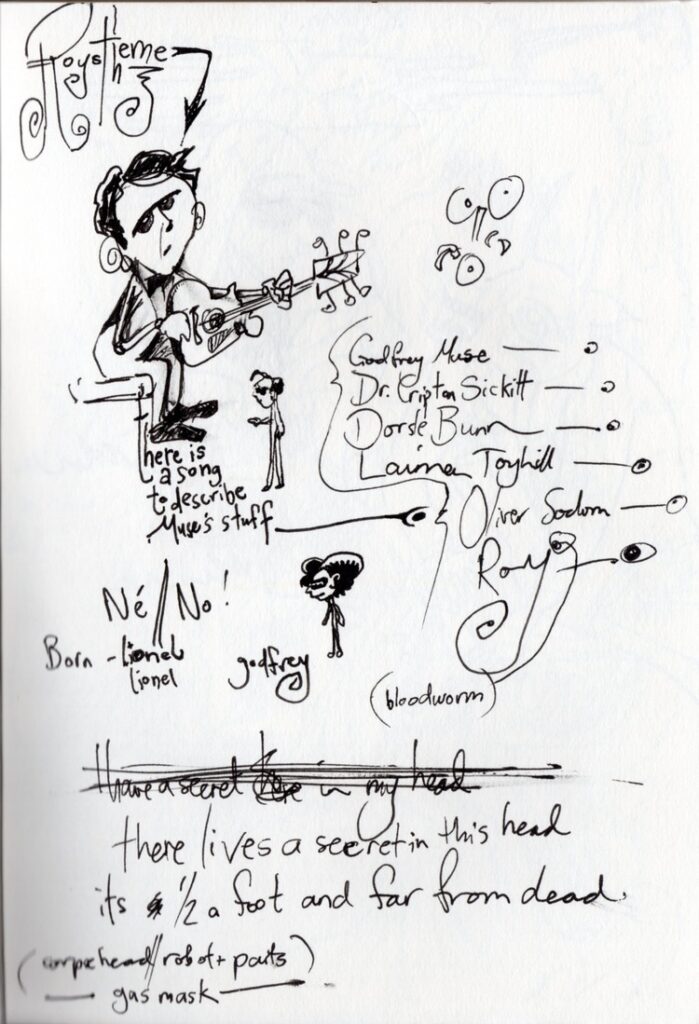 Roy's theme
Godfrey Muse
Dr. Cripton Sickitt
Dorse Bunn
Toyhill
Oliver Sodom
Roy
there is
a song
to describe
Muse's stuff
Né // No!
Born - lionel
lionel
godfrey
(bloodworm)
I have a secret here in my head
there lives a secret in this head
its 1/2 a foot and far from dead.
(corpse head // robot + parts)
gas mask